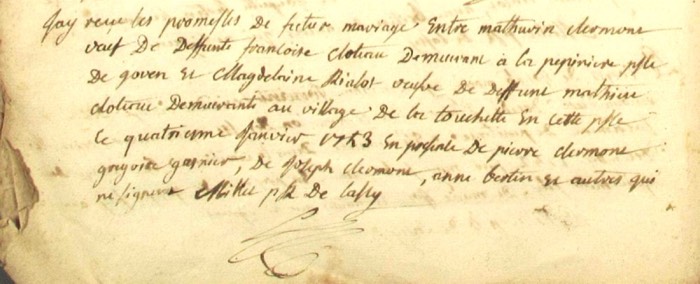 Jay reçu les promesses de future mariage Entre mathurin clermont
veuf De Deffunte francoise cloteau Demeurant à la pepiniere psse
De goven Et Magdelaine Rialot veufve de Deffunt mathieu
cloteau Demeurante au village De la touchette En cette psse
Ce quatrieme Janvier 1753 En presence de pierre clermont
gregoire garnier, De Joseph clermont, anne bertin Et autres qui
ne signent Millet p De Lassy